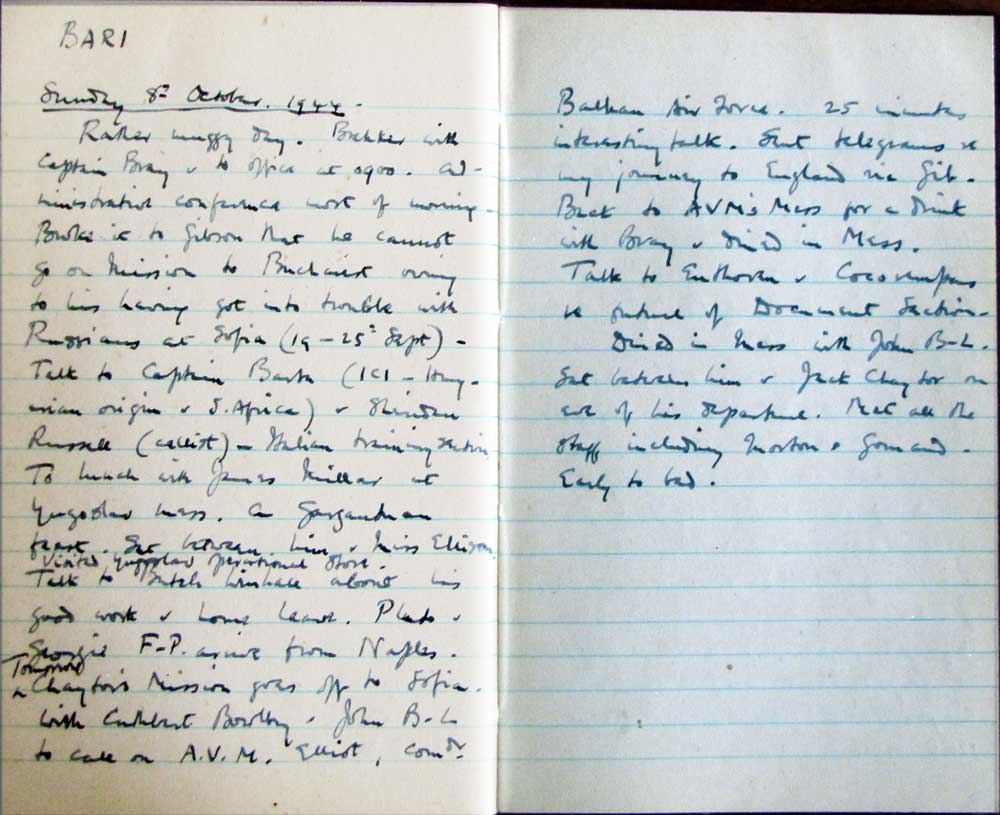 BARI
Sunday 8th October. 1944.
Rather muggy day. Bankes with
Captain Bray & to office at 0900. Ad-
ministrative conference most of morning.
Broke it to Gibson that he cannot
go on Mission to Bucharest owing
to his having got into trouble with
Russians at Sofia (19 - 25th Sept) -
Talk to Captain (ICI - Hung-
arian origin & S. Africa) & Sheridan
Russell (cellist) - Italian training section
To lunch with James Millar at
Yugoslav mess. A Gargantuan
feast. Sat between him & Miss Ellison
Visited Yugoslav operational store.
Talk to Butch about his
good work & home leave. Pluto &
Georgie F-P. arrive from Naples.
Tomorrow
Chaytor's Mission goes off to Sofia.
With Cuthbert Bowlby & John B-L
to call on A.V.M. Elliot, Comdr.
Balkan Air Force. 25 minutes
interesting talk. Sent telegrams re
my journey to England via Gib.
Back to AVM's Mess for a drink
with Bray & dined in Mess.
Talk to Enthoven &
re future of Document Section.
Dined in Mess with John B-L.
Sat between him & Jack Chaytor on
eve of his departure. Met all the
staff including Morton &
Early to bed.